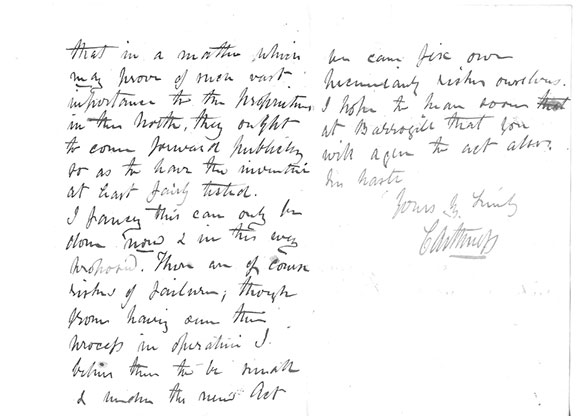 that in a matter which
may prove of such vast
importance to the proprietors
in the North, they ought
to come forward publicly
so as to have the invention
at least fairly tested.
I fancy this can only be
done now & in this way
proposed. There are of course
risks of failure; though
from having seen the
process in operation I
believe them to be small
& under the new Act
we can fix our
pecuniary risks ourselves.
I hope to hear soon that
at Barrogill that you
will agree to the act above.
In haste
Yours truly
Caithness